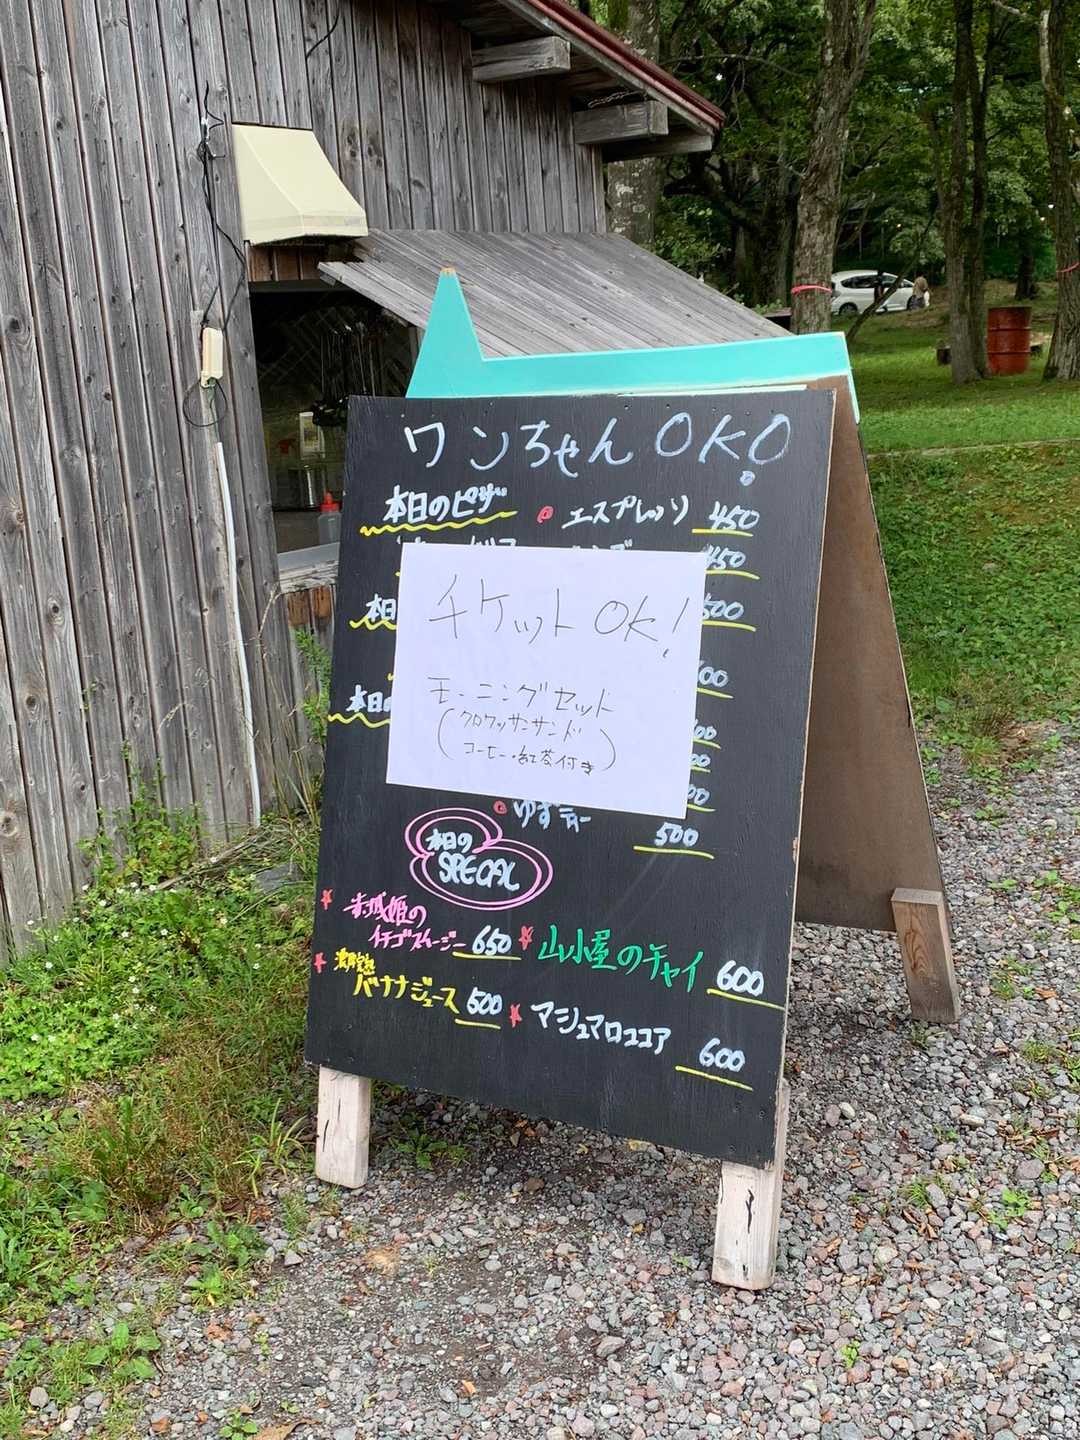 ワンちゃん OK!
本日のピザ
エスプレッソ 450
450
本日
500
本日の
チケット OK!
モーニングセット
(クロワッサンサンド
コーヒー・紅茶付き)
ゆずティー
500
本日の
SPECIAL
赤城姫の
イチゴスムージー 650
山小屋のチャイ 600
濃厚
バナナジュース 500
マシュマロココア 600